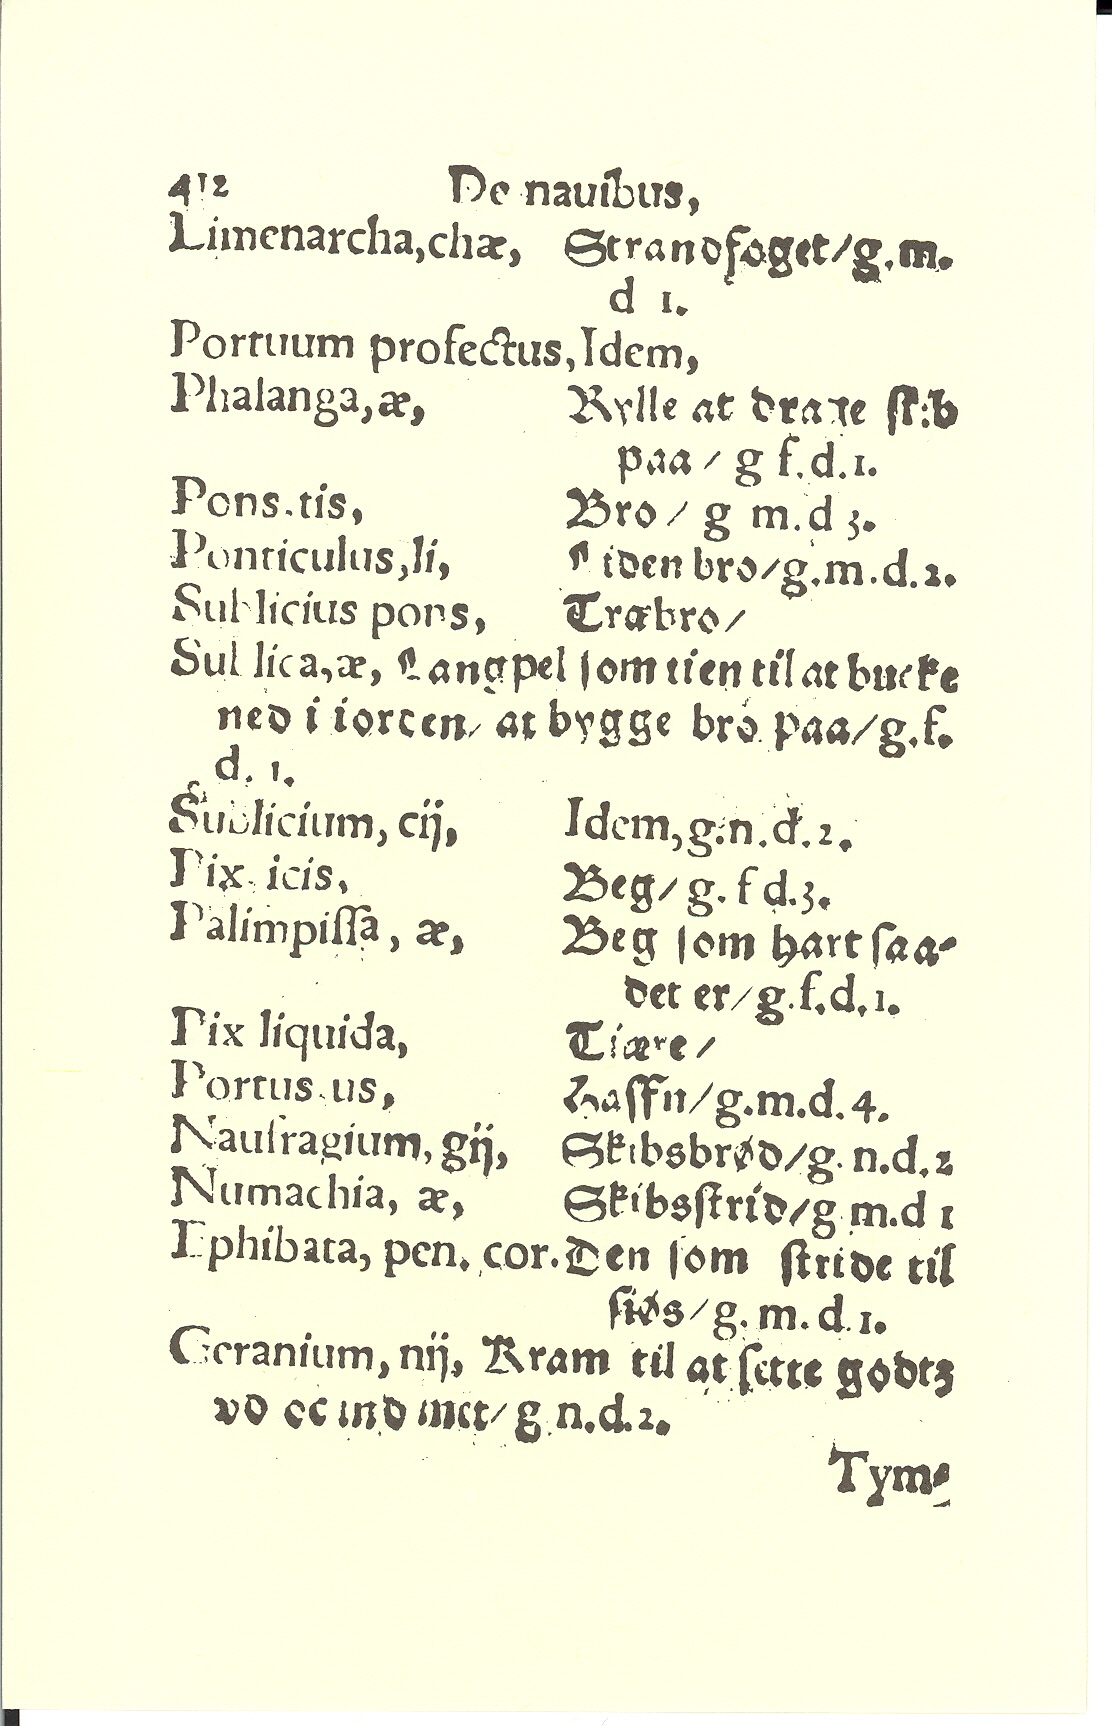 412 De nauibus,
Limenarcha,chæ, Strandfoget/g.m.
d 1.
Portuum profectus,Idem,
Phalanga,æ, Rylle at drage skib
paa / g f.d.1.
Pons.tis, Bro / g m.d 3.
Ponticulus,li, Liden bro/g.m.d.2.
Sublicius pons, Træbro/
Sublica,æ, Langpel som tien til at bucke
ned i iorden/ at bygge bro paa/g.f.
d. 1.
Sublicium, cij, Idem,g.n.d.2.
Pix. icis, Beg/ g. f d.3.
Palimpissa, æ, Beg som hart saa-
det er/g.f.d.1.
Pix liquida, Tiære/
Portus.us, Haffn/g.m.d.4.
Naufragium, gij, Skibsbrød/g. n.d.2
Numachia, æ, Skibsstrid/g m.d 1
Ephibata, pen. cor. Den som stride til
siøs/g. m. d.1.
Geranium, nij, Kram til at sette godtz
vd oc ind met/g n.d.2.
Tym-